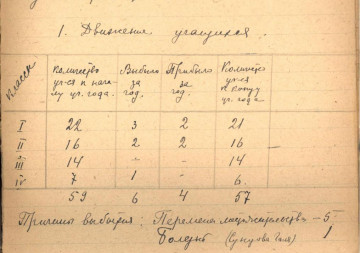 1. Движения учащихся.
Классы
Количество уч-ся к нача-лу уч. года.
Выбыло за год.
Прибыло за год.
Количество уч-ся к концу уч. года.
I 22 3 2 21
II 16 2 2 16
III 14 - - 14
IV 7 1 - 6.
59 6 4 57
Причина выбытия: Перемена местожительства - 5
Болезнь 1